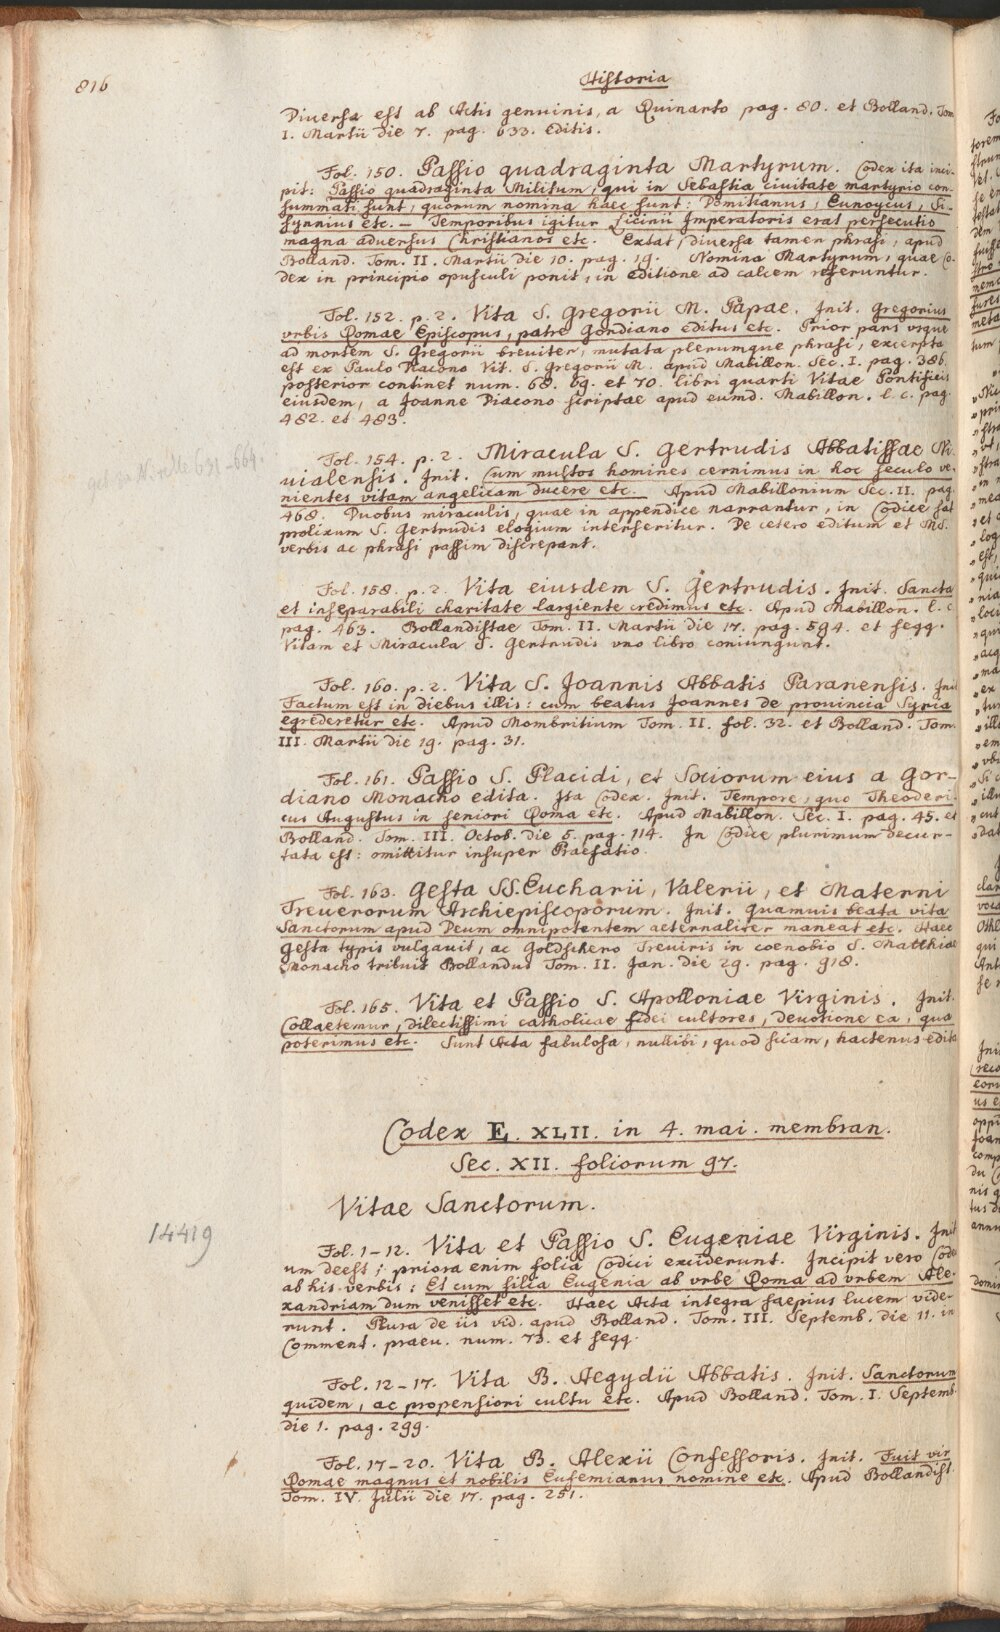 816
Historia
Diuersa est ab Actis genuinis, a Ruinarto pag. 80. et Bolland. Tom
I. Martii die 7. pag. 633. editis.
Fol. 150. Passio quadraginta Martyrum. Codex ita inci-
pit: Passio quadraginta Militum, qui in Sebastia ciuitate martyrio con-
summati sunt, quorum nomina haec sunt: Domitianus, Eunoycus, Si-
synnius etc. — Temporibus igitur Licinii Imperatoris erat persecutio
magna aduersus Christianos etc. Extat, diuersa tamen phrasi, apud
Bolland. Tom. II. Martii die 10. pag. 19. Nomina Martyrum, quae Co-
dex in principio opusculi ponit, in editione ad calcem referuntur.
Fol. 152. p. 2. Vita S. Gregorii M. Papae. Init. Gregorius
vrbis Romae Episcopus, patre Gordiano editus etc. Prior pars vsque
ad mortem S. Gregorii breuiter, mutata plerumque phrasi, excerpta
est ex Paulo Diacono Vit. S. Gregorii M. apud Mabillon. Sec. I. pag. 386.
posterior continet num. 68. 69. et 70. libri quarti Vitae Pontificis
eiusdem, a Joanne Diacono scriptae apud eumd. Mabillon. l. c. pag.
482. et 483.
Fol. 154. p. 2. Miracula S. Gertrudis Abbatissae Ni-
uialensis. Init. Cum multos homines cernimus in hoc seculo ve-
nientes vitam angelicam ducere etc. Apud Mabillonium Sec. II. pag.
468. Duobus miraculis, quae in appendice narrantur, in Codice sat
prolixum S. Gertrudis elogium interseritur. De cetero editum et MS.
verbis ac phrasi passim discrepant.
Fol. 158. p. 2. Vita eiusdem S. Gertrudis. Init. Sancta
et inseparabili charitate largiente credimus etc. Apud Mabillon. l. c.
pag. 463. Bollandistae Tom. II. Martii die 17. pag. 594. et seqq.
Vitam et Miracula S. Gertrudis vno libro coniungunt.
Fol. 160. p. 2. Vita S. Joannis Abbatis Paranensis. Init
Factum est in diebus illis: cum beatus Joannes de prouincia Syria
egrederetur etc. Apud Mombritium Tom. II. fol. 32. et Bolland. Tom.
III. Martii die 19. pag. 31.
Fol. 161. Passio S. Placidi, et Sociorum eius a Gor-
diano Monacho edita. Ita Codex. Init. Tempore, quo Theoderi-
cus Augustus in seniori Roma etc. Apud Mabillon. Sec. I. pag. 45. et
Bolland. Tom. III. Octob. die 5. pag. 114. In Codice plurimum decur-
tata est: omittitur insuper Praefatio.
Fol. 163. Gesta SS. Eucharii, Valerii, et Materni
Treuerorum Archiepiscoporum. Init. Quamuis beata vita
Sanctorum apud Deum omnipotentem aeternaliter maneat etc. Haec
Gesta typis vulgauit, ac Goldschero Treuiris in coenobio S. Matthiae
Monacho tribuit Bollandus Tom. II. Jan. die 29. pag. 918.
Fol. 165. Vita et Passio S. Apolloniae Virginis. Init.
Collaetemur, dilectissimi catholicae fidei cultores, deuotione ea, qua
poterimus etc. Sunt Acta fabulosa, nullibi, quod sciam, hactenus edita
Codex E. XLII. in 4. mai. membran.
Sec. XII. foliorum 97.
Vitae Sanctorum.
14419
Fol. 1-12. Vita et Passio S. Eugeniae Virginis. Init
um deest; priora enim folia Codici exciderunt. Incipit vero Codex
ab his verbis: Et cum filia Eugenia ab vrbe Roma ad vrbem Ale-
xandriam dum venisset etc. Haec Acta integra saepius lucem vide-
runt. Plura de iis vid. apud Bolland. Tom. III. Septemb. die 11. in
Comment. praeu. num. 73. et seqq.
Fol. 12-17. Vita B. Aegydii Abbatis. Init. Sanctorum
quidem, ac propensiori cultu etc. Apud Bolland. Tom. I. Septemb.
die 1. pag. 299.
Fol. 17-20. Vita B. Alexii Confessoris. Init. Fuit vir
Romae magnus et nobilis Eufemianus nomine etc. Apud Bollandist.
Tom. IV. Julii die 17. pag. 251.